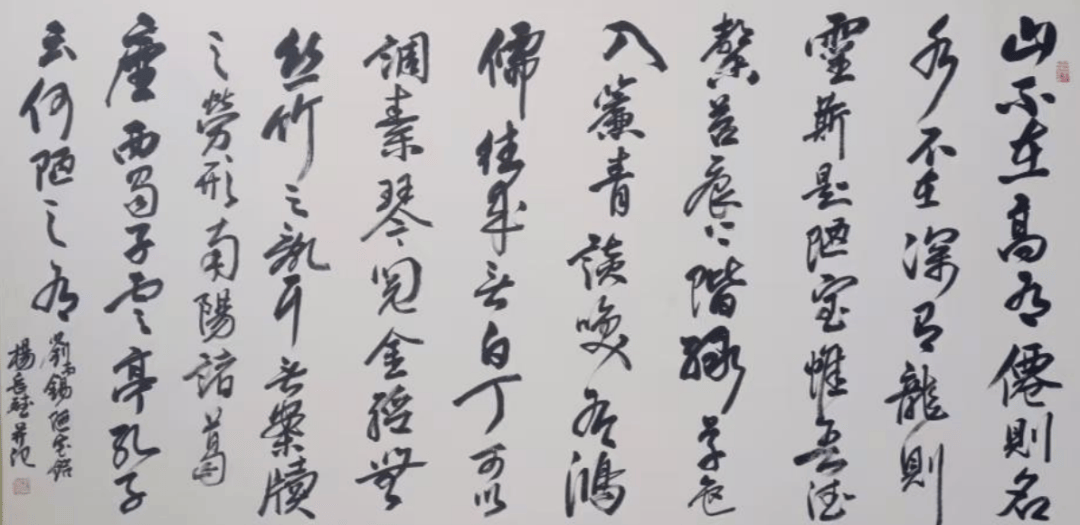 山不在高有僊則名
水不在深有龍則
靈斯是陋室惟吾德
馨苔痕上階緑草色
入簾青談咲有鴻
儒往来无白丁可以
調素琴閲金經無
丝竹之亂耳无案牘
之勞形南陽諸葛
廬西蜀子雲亭孔子
云何陋之有
劉禹錫陋室銘
楊岳